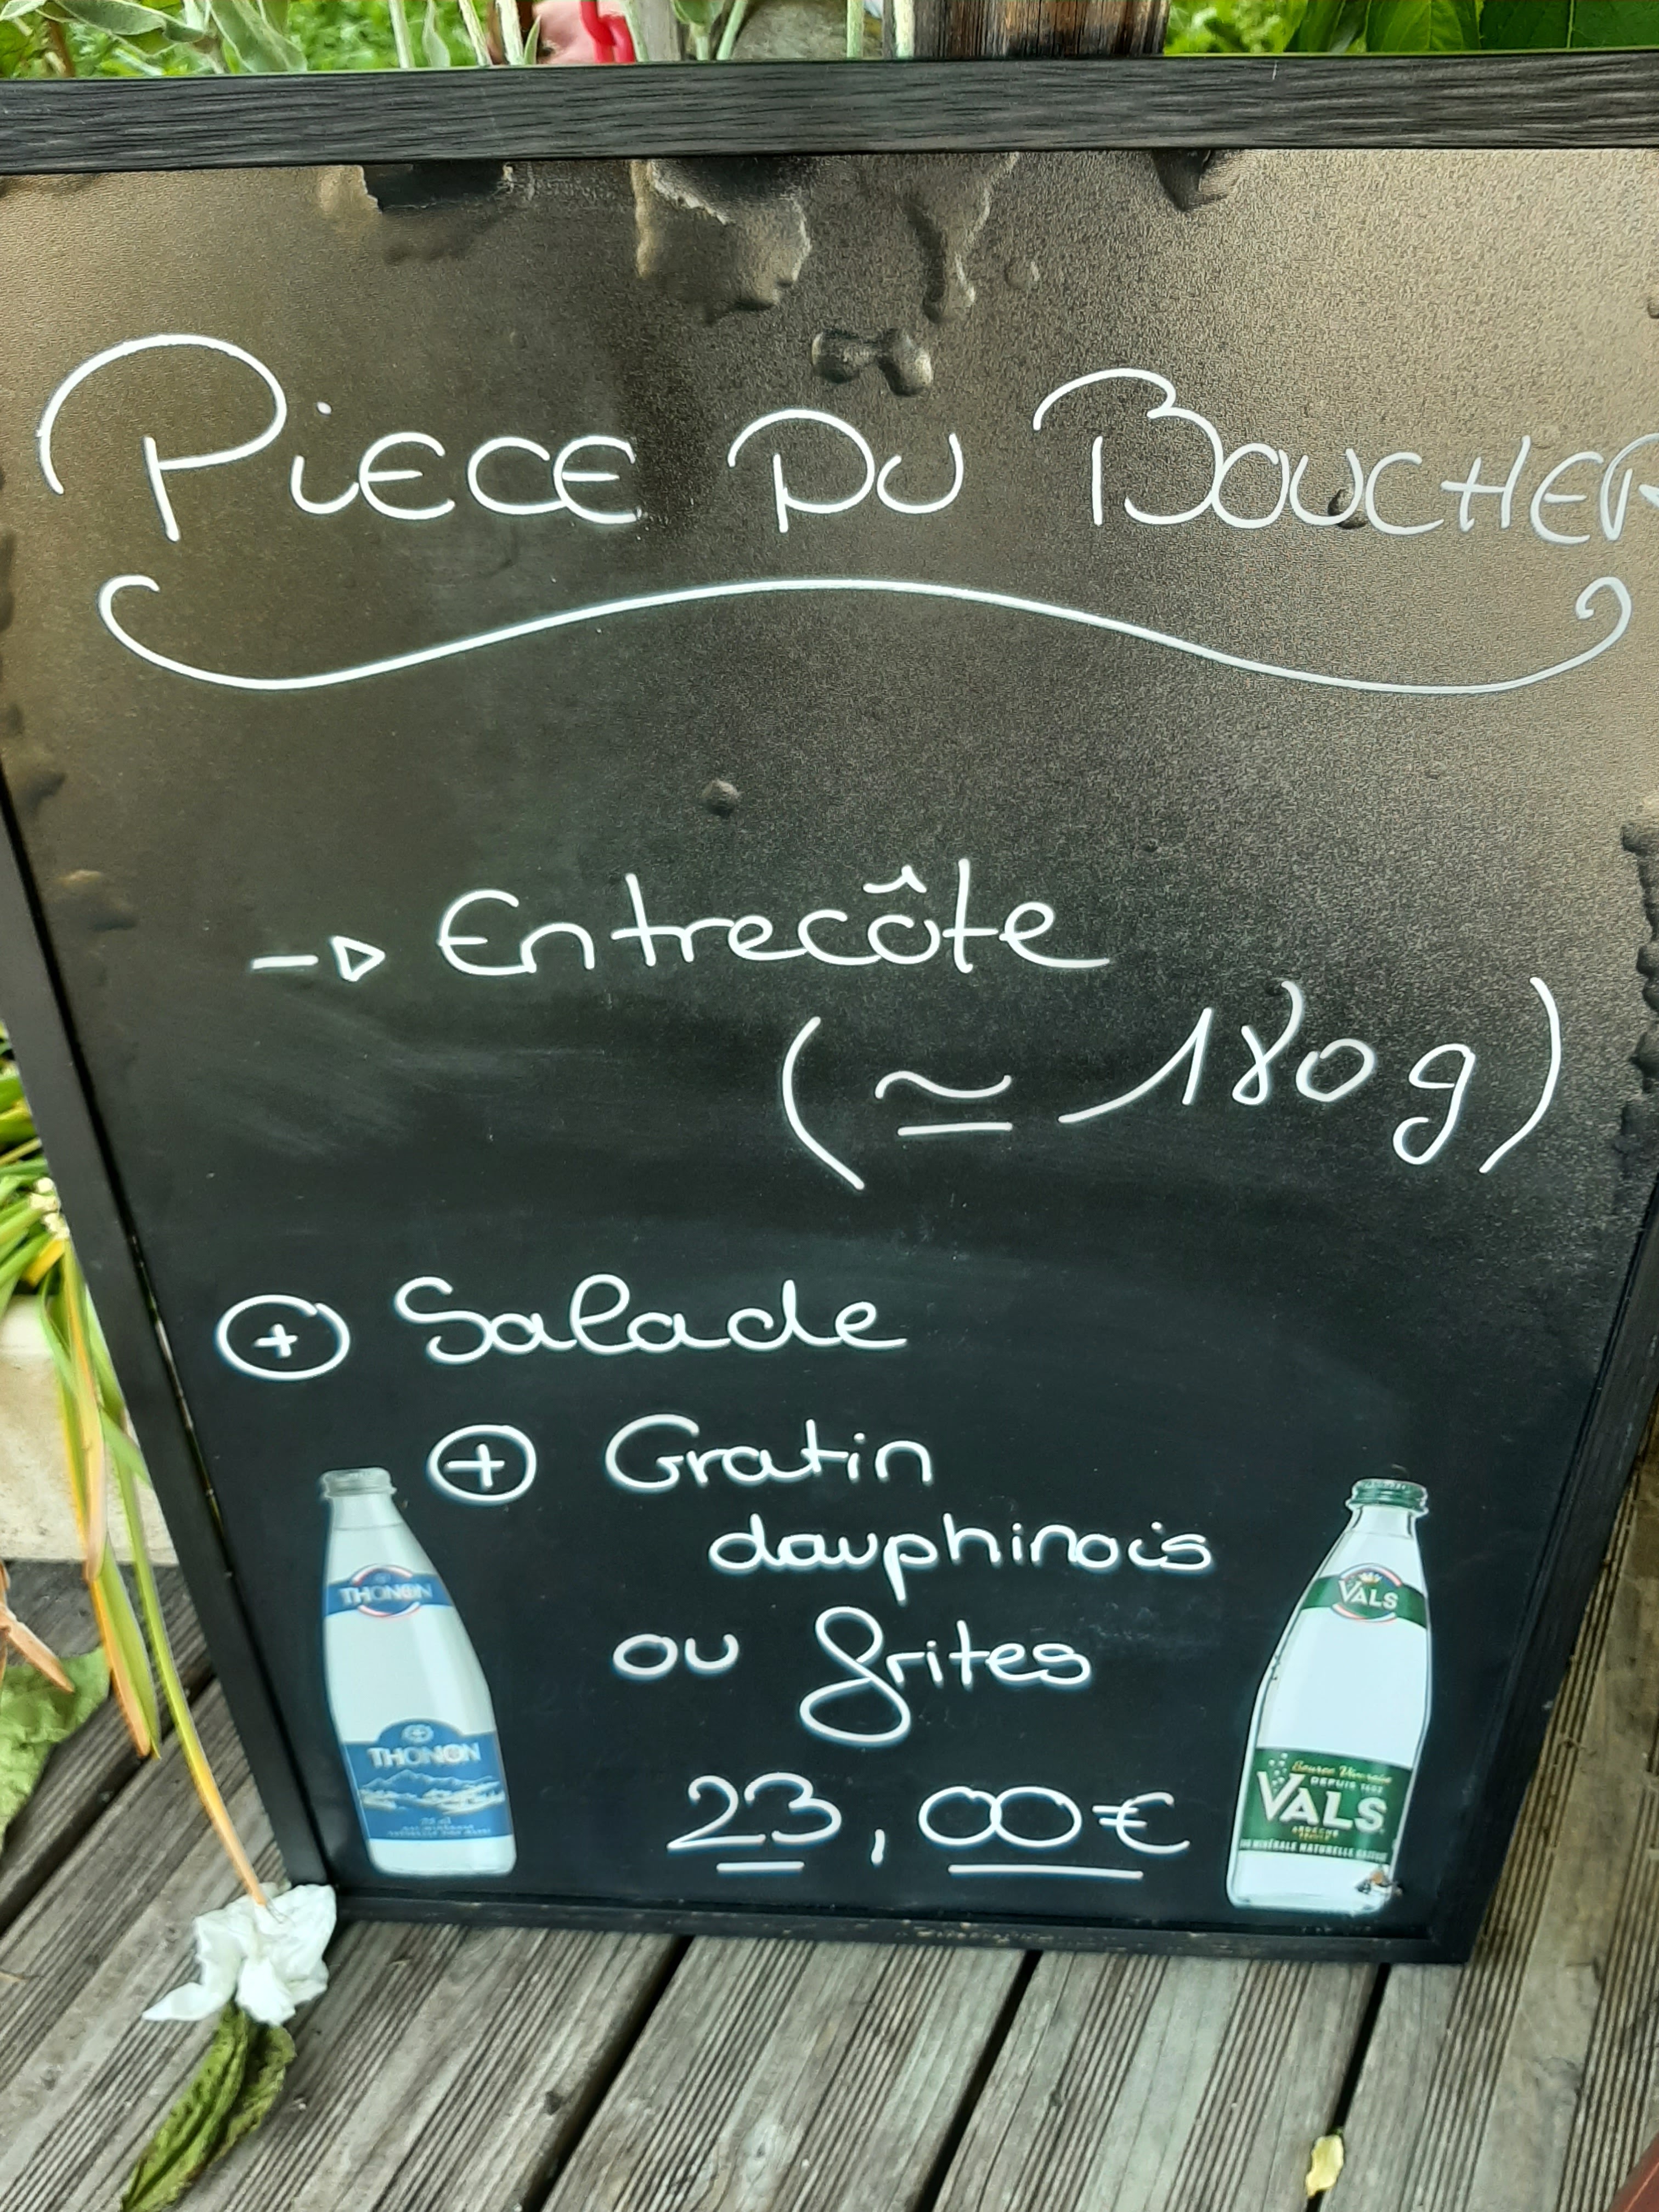 PiECE DU BOUCHER
Entrecôte
(≃ 180g)
+ Salade
+ Gratin
dauphinois
ou frites
23,00€
THONON
THONON
VALS
DEPUIS
VALS